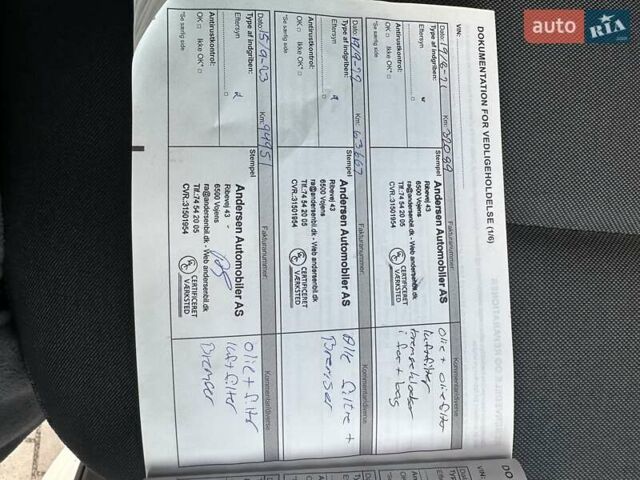 auto RIA
.com
DOKUMENTATION FOR VEDLIGEHOLDELSE (1/6)
VIN:
Dato: 19/8-21 Km: 32099 Fakturanummer: Kommentar/diverse
Type af indgriben: Stempel
Eftersyn
Antirustkontrol:
OK □ Ikke OK* □
*Se særlig side
Andersen Automobiler AS
Ribevej 43
6500 Vojens
ra@andersenbil.dk - Web andersenbil.dk
Tlf.:74 54 20 05
CVR.:31501954
CERTIFICERET
VÆRKSTED
Olie + oliefilter
luftfilter
bremseklodser
i for + bag
Dato: 19/9-22 Km: 63667 Fakturanummer: Kommentar/diverse
Type af indgriben: Stempel
Eftersyn □
Antirustkontrol:
OK □ Ikke OK* □
*Se særlig side
Andersen Automobiler AS
Ribevej 43
6500 Vojens
ra@andersenbil.dk - Web andersenbil.dk
Tlf.:74 54 20 05
CVR.:31501954
CERTIFICERET
VÆRKSTED
Alle filtre +
Bremser
Dato: 15/9-23 Km: 94951 Fakturanummer: Kommentar/diverse
Type af indgriben: Stempel
Eftersyn □
Antirustkontrol:
OK □ Ikke OK* □
*Se særlig side
Andersen Automobiler AS
Ribevej 43
6500 Vojens
ra@andersenbil.dk - Web andersenbil.dk
Tlf.:74 54 20 05
CVR.:31501954
CERTIFICERET
VÆRKSTED
Olie + filter
luftfilter
Bremser
DO
VIN:
Dato
Type
Efter
Anti
OK
*Se